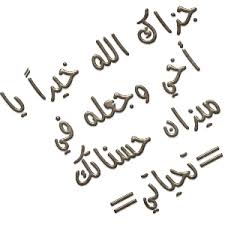 جزاك الله خيرا يا
أخي وجعله في
ميزان حسناتك
= تحياتي =